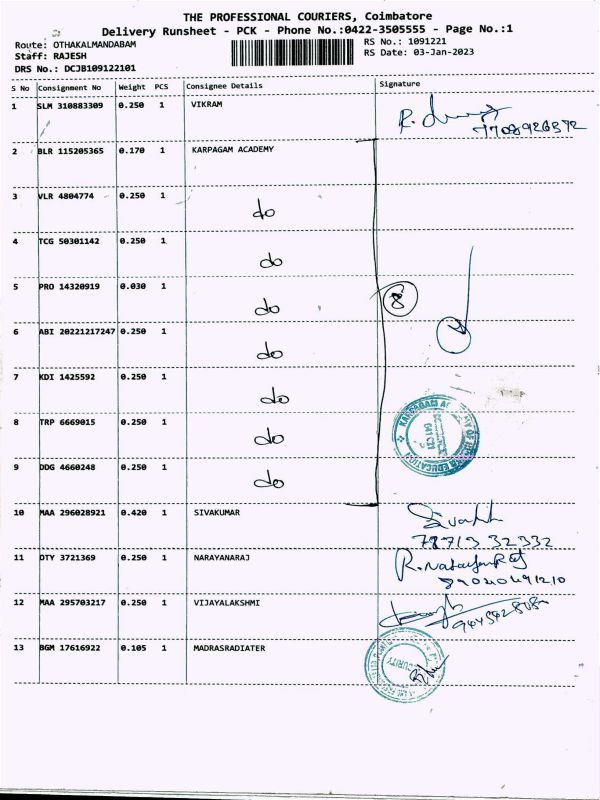 THE PROFESSIONAL COURIERS, Coimbatore
Delivery Runsheet - PCK - Phone No.:0422-3505555 - Page No.:1
Route: OTHAKALMANDABAM
RS No.: 1091221
Staff: RAJESH
RS Date: 03-Jan-2023
DRS No.: DCJB109122101
S No Consignment No Weight PCS Consignee Details Signature
1 SLM 310883309 0.250 1 VIKRAM
7708926372
2 BLR 115205365 0.170 1 KARPAGAM ACADEMY
3 VLR 4804774 0.250 1 do
4 TCG 50301142 0.250 1 do
5 PRO 14320919 0.030 1 do 8
6 ABI 20221217247 0.250 1 do
7 KDI 1425592 0.250 1 do
8 TRP 6669015 0.250 1 do
9 DDG 4660248 0.250 1 do
10 MAA 296028921 0.420 1 SIVAKUMAR
78713 32332
11 DTY 3721369 0.250 1 NARAYANARAJ
12 MAA 295703217 0.250 1 VIJAYALAKSHMI
13 BGM 17616922 0.105 1 MADRASRADIATER
SECURITY